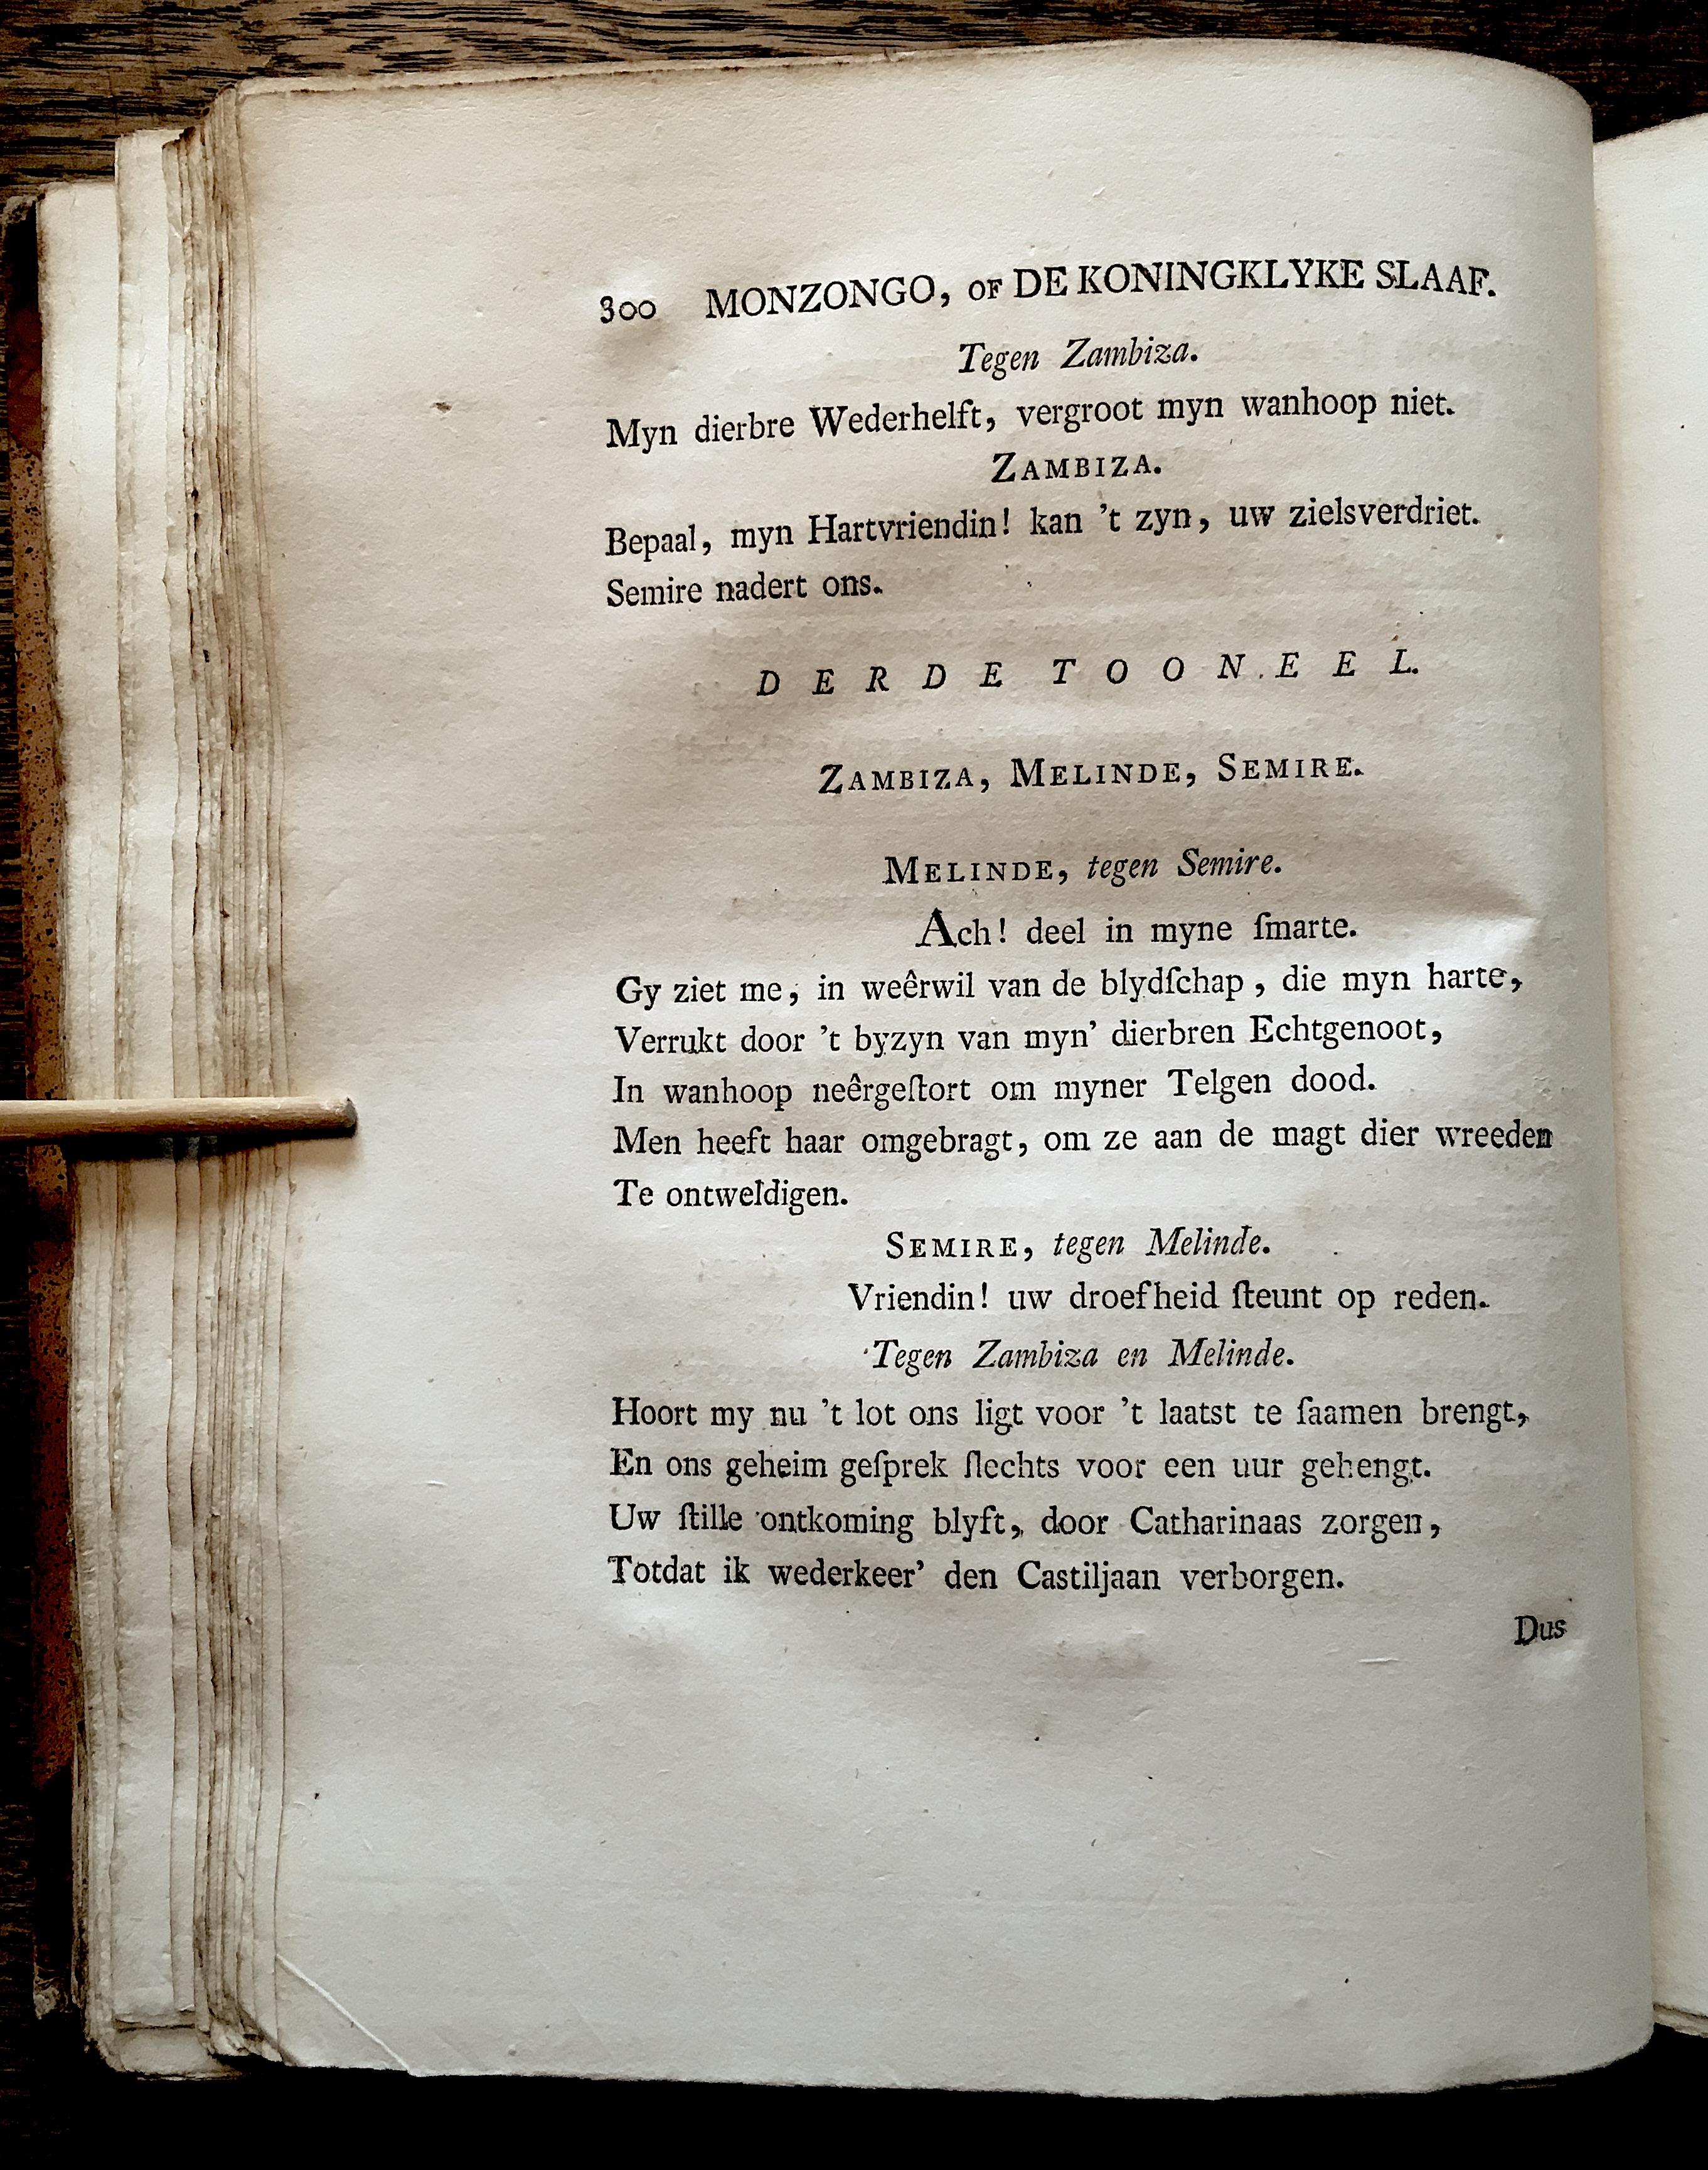 300 MONZONGO, OF DE KONINGKLYKE SLAAF.
Tegen Zambiza.
Myn dierbre Wederhelft, vergroot myn wanhoop niet.
ZAMBIZA.
Bepaal, myn Hartvriendin! kan 't zyn, uw zielsverdriet.
Semire nadert ons.
DERDE TOONEEL.
ZAMBIZA, MELINDE, SEMIRE.
MELINDE, tegen Semire.
Ach! deel in myne ſmarte.
Gy ziet me, in weêrwil van de blydſchap, die myn harte,
Verrukt door 't byzyn van myn' dierbren Echtgenoot,
In wanhoop neêrgeſtort om myner Telgen dood.
Men heeft haar omgebragt, om ze aan de magt dier wreeden
Te ontweldigen.
SEMIRE, tegen Melinde.
Vriendin! uw droefheid ſteunt op reden.
Tegen Zambiza en Melinde.
Hoort my nu 't lot ons ligt voor 't laatst te ſaamen brengt,
En ons geheim geſprek ſlechts voor een uur gehengt.
Uw ſtille ontkoming blyft, door Catharinaas zorgen,
Totdat ik wederkeer' den Castiljaan verborgen.
Dus